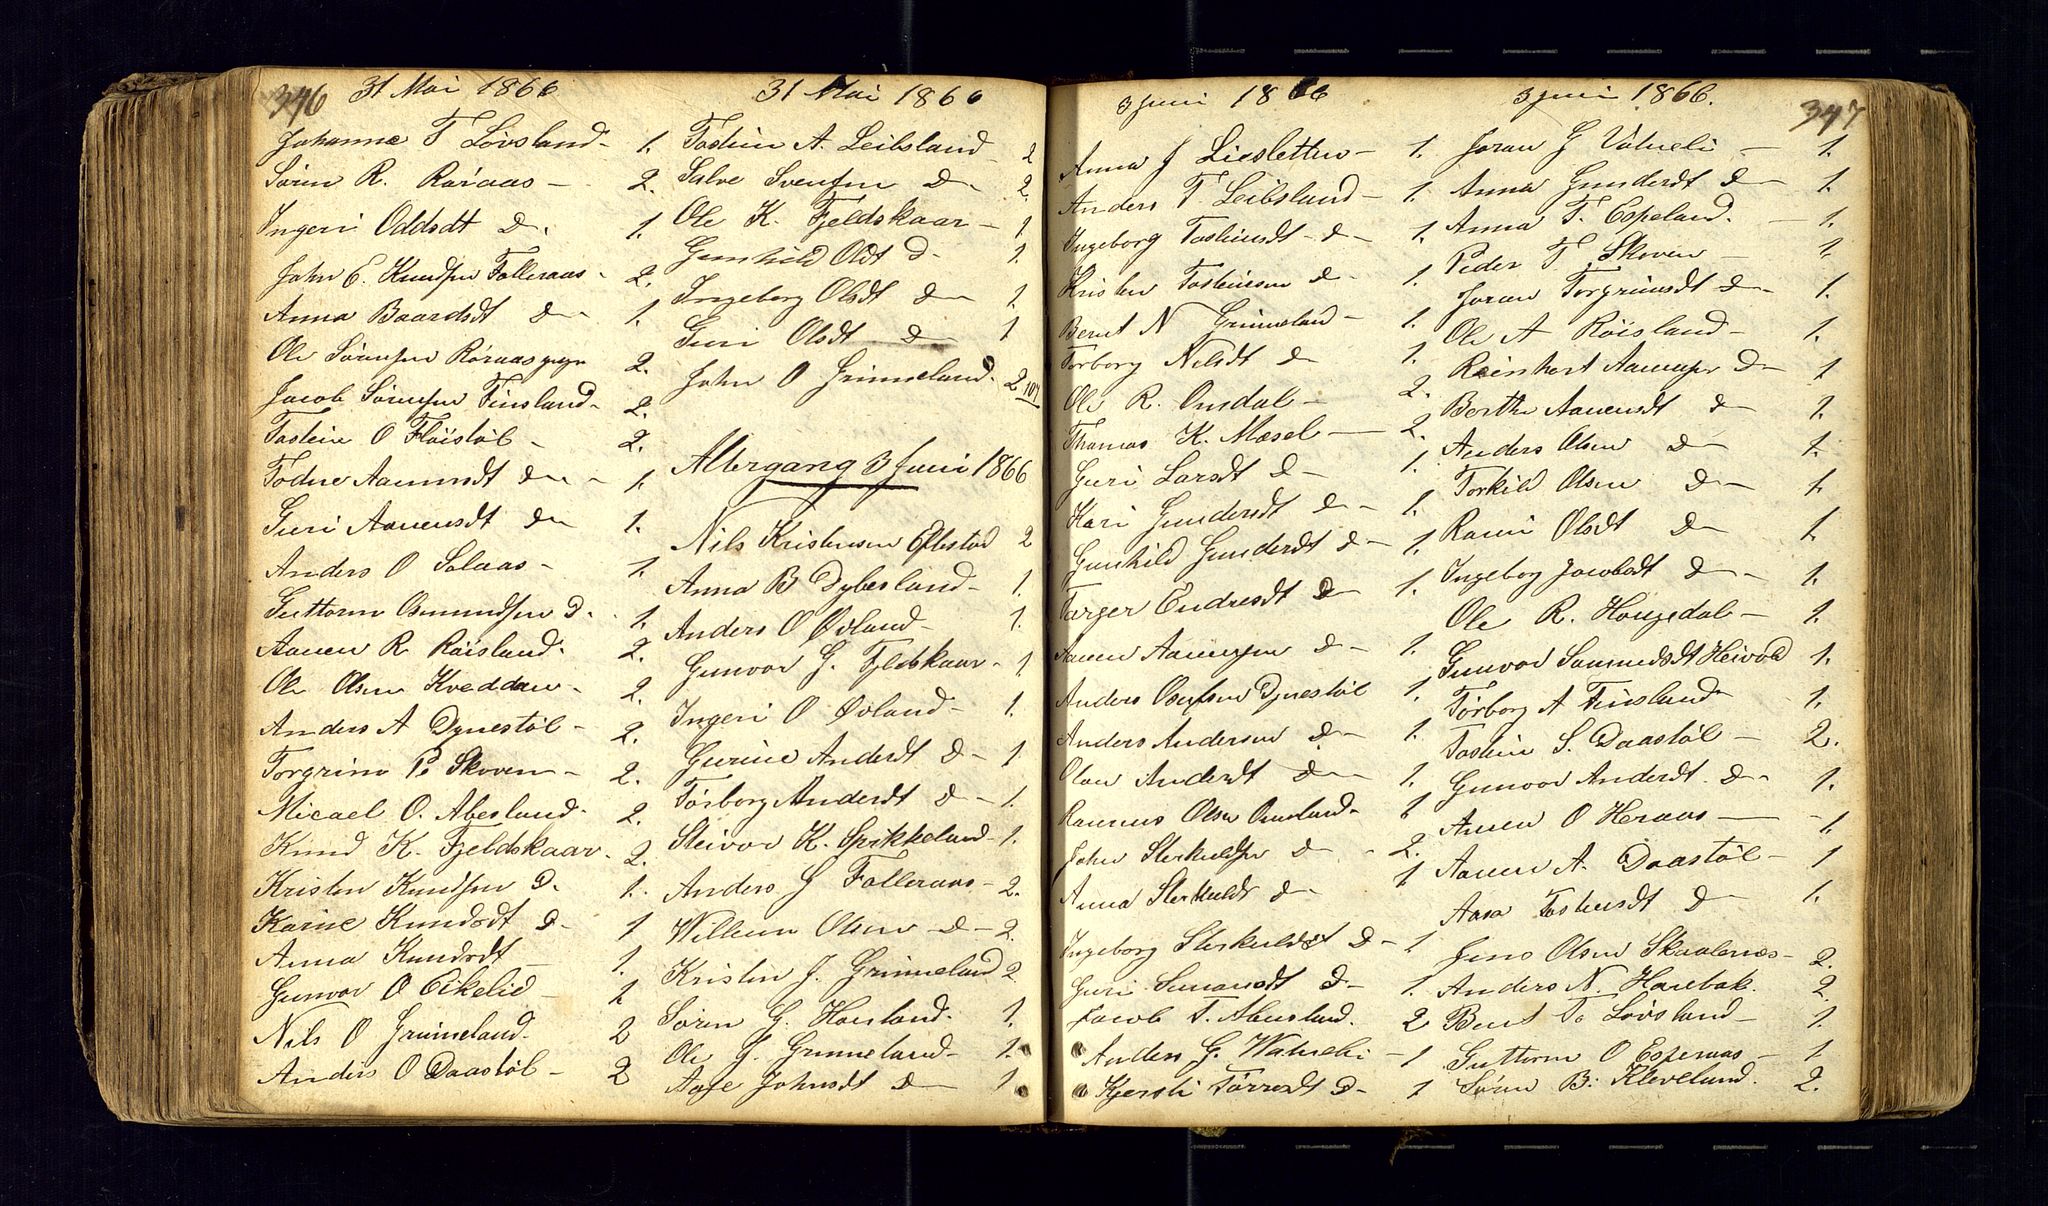 346 31 Mai 1866
Johanne T Lövsland - 1.
Sören R. Röraas - 2.
Ingeri Oddsdt D. 1.
John E. Knudsen Falleraas - 2.
Anna Baardsdt D - 1.
Ole Sörensen Röraas 2.
Jacob Sörensen Finsland - 2.
Tostein O Flöistöl - 2.
Todne Aanensdt D - 1.
Guri Aanensdt D - 1.
Anders O Solaas - 1.
Guttorm Osmundsen D. 1.
Aanen R Röisland. 2.
Ole Olsen Kveddan - 2.
Anders A Dynestöl - 2.
Torgrim P. Skoven - 2.
Micael O. Abesland - 2.
Knud K. Fjeldskaar - 2.
Kristen Knudsen D. 1.
Karine Knudsdt D. 1
Anna Knudsdt - 1.
Gunvor O Eikelid - 1
Nils O Grimeland. 2
Anders O Daastöl - 2
31 Mai 1866
Tostein A. Leibsland - 2
Salve Svensen D - 2.
Ole K. Fjeldskaar - 1
Gunhild Oldt D - 1.
Ingeborg Olsdt D - 1.
Guri Olsdt D - 1
John O Grimeland. 2 107
Altergang 3 Juni 1866
Nils Kristensen Eftestad 2
Anna B Dybesland - 1.
Anders O Övland - 1.
Gunvor G. Fjeldskaar - 1
Ingeri O Övland - 1.
Gurine Andersdt D - 1
Törborg Andersdt D - 1.
Steivor K. Sprikkeland - 1.
Anders G Falleraas - 2.
Willum Olsen D - 2.
Kristen J. Grimeland 2
Sören G. Houland. 1.
Ole J. Grimeland - 1.
Aase Johnsdt D - 1.
3 Juni 1866
Anna J Liesletten - 1.
Anders T Leibsland - 1.
Ingeborg Tosteinsdt D - 1.
Kristen Tosteinsen D - 1.
Bernt N Grimeland - 1.
Torborg Nilsdt D - 1.
Ole R. Omdal - 2.
Thomas K. Mæsel - 2.
Guri Larsdt D - 1
Kari Gundersdt D - 1.
Gunhild Gundersdt D - 1.
Torger Endresdt D - 1.
Aanen Aanensen D - 1.
Anders Osulsen Dynestöl 1.
Anders Andersen D - 1.
Olau Andersdt D - 1.
Rasmus Olsen Omland - 1
John Sterkuldsen D - 2.
Anna Sterkuldsdt D - 1
Ingeborg Sterkuldsdt D - 1
Guri D - 1.
Jacob T. Abusland. 2
Anders G. Watneli - 1
Kjersti Törresdt D - 1
3 Juni 1866. 347
Joran G Vatneli - 1.
Anna Gundersdt D - 1.
Anna T. Espeland. - 1.
Peder T Skoven - 1.
Joran Torgrimsdt D - 1.
Ole A Röisland - 1.
Reinhert Aanensen D - 1
Berthe Aanensdt D - 1.
Anders Olsen D - 1.
Torkild Olsen D - 1.
Rami Olsdt D - 1.
Ingeborg Jacobsdt D - 1.
Ole R. Hougedal - 1.
Gunvor Samundsdt Heivold 1.
Törborg A Finsland 1.
Tostein S. Daastöl - 2.
Gunvor Andersdt. D - 1.
Aanen O Heraas - 1.
Aanen A. Daastöl - 1
Aasa Tosteinsdt D - 1.
Jens Olsen Skaalenes - 2.
Anders N. Harebak. 2.
Bent T. Lövsland - 1.
Guttorm O Esperaas - 1
Sören B. Kleveland. 2.